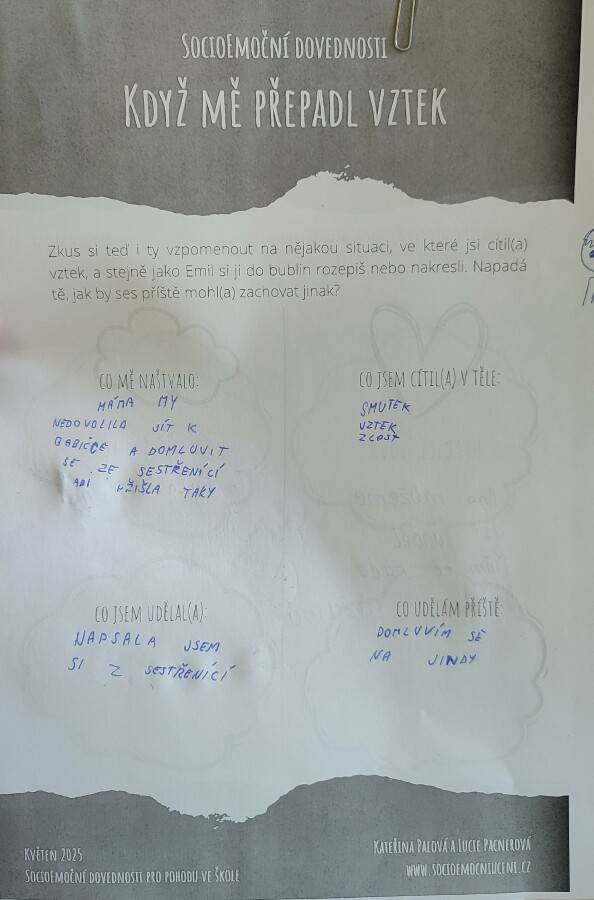 SocioEmoční dovednosti
Když mě přepadl vztek
Zkus si teď i ty vzpomenout na nějakou situaci, ve které jsi cítil(a)
vztek, a stejně jako Emil si ji do bublin rozepiš nebo nakresli. Napadá
tě, jak by ses příště mohl(a) zachovat jinak?
CO MĚ NAŠTVALO:
MÁMA MY
NEDOVOLILA JÍT K
BABIČCE A DOMLUVIT
SE ZE SESTŘENÍCÍ
ABI PŘIŠLA TAKY
CO JSEM CÍTIL(A) V TĚLE:
SMUTEK
VZTEK
ZLOST
CO JSEM UDĚLAL(A):
NAPSALA JSEM
SI Z SESTŘENÍCÍ
CO UDĚLÁM PŘÍŠTĚ:
DOMLUVÍM SE
NA JINDY
Květen 2025
SocioEmoční dovednosti pro pohodu ve škole
Kateřina Palová a Lucie Pacnerová
www.socioemocniuceni.cz